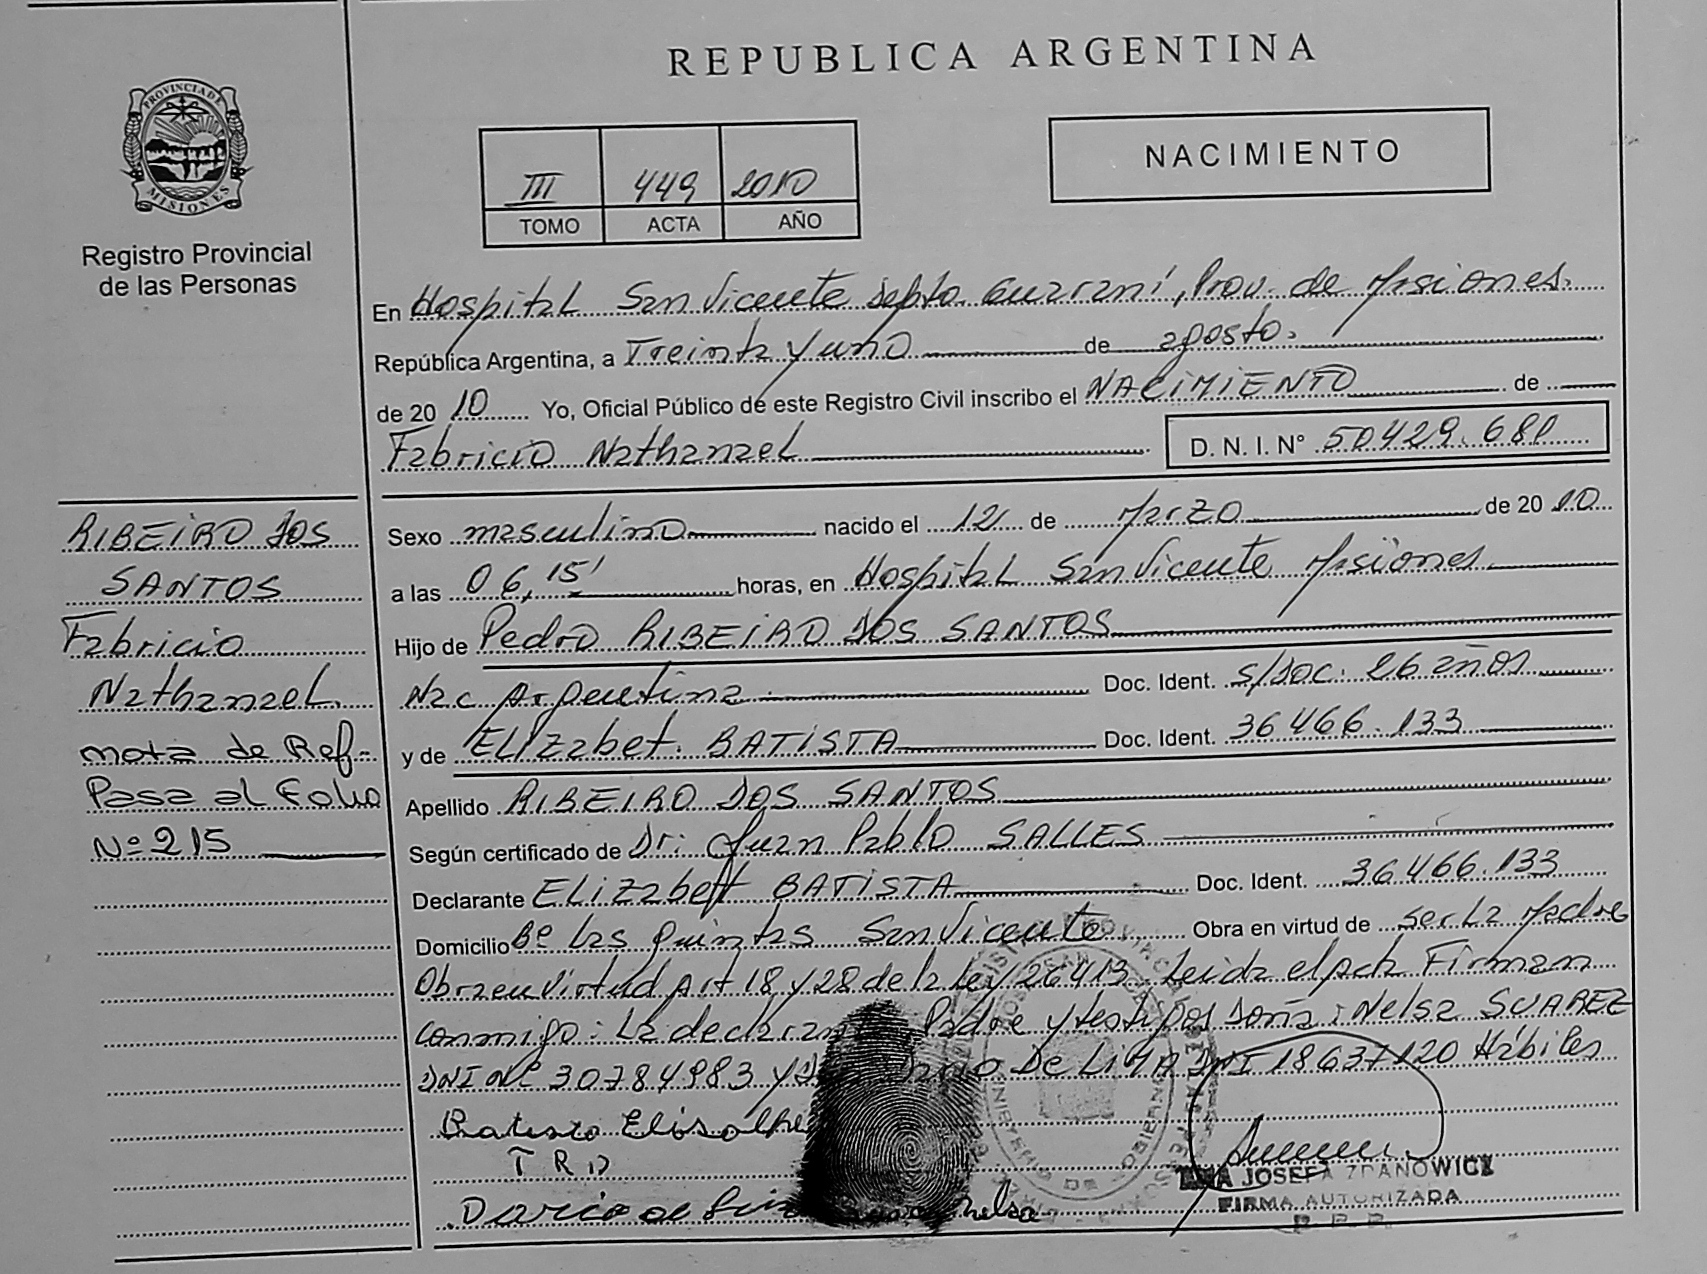 REPUBLICA ARGENTINA
PROVINCIA DE
MISIONES
Registro Provincial
de las Personas
III 449 2010
TOMO ACTA AÑO
NACIMIENTO
En Hospital San Vicente Depto. Guaraní, Prov. de Misiones.
República Argentina, a Treinta y uno de agosto.
de 2010 Yo, Oficial Público de este Registro Civil inscribo el NACIMIENTO de
Fabricio Nathanael D. N. I. Nº 50429.680
RIBEIRO DOS
SANTOS
Fabricio
Nathanael.
nota de Ref-
Pasa al Folio
Nº 215
Sexo masculino nacido el 12 de Marzo de 2010
a las 06,15' horas, en Hospital San Vicente Misiones
Hijo de Pedro RIBEIRO DOS SANTOS
Nac Argentina. Doc. Ident. S/Doc. 26 años
y de Elizabet. BATISTA Doc. Ident. 36466.133
Apellido RIBEIRO DOS SANTOS
Según certificado de Dr: Juan Pablo SALLES
Declarante Elizabett BATISTA Doc. Ident. 36466.133
Domicilio Bº las Quintas San Vicente Obra en virtud de ser la Madre
Obra en virtud Art 18 y 28 de la ley 26413. Leida el acta Firman
conmigo: La Padre y testigos Doña: Nelsa SUAREZ
DNI Nº 30784983 y DE LIMA DNI 18637120 Hábiles
Batista
T R D
Dario de Nelsa
JOSEFA ZDANOWICZ
FIRMA AUTORIZADA
R. P. P.